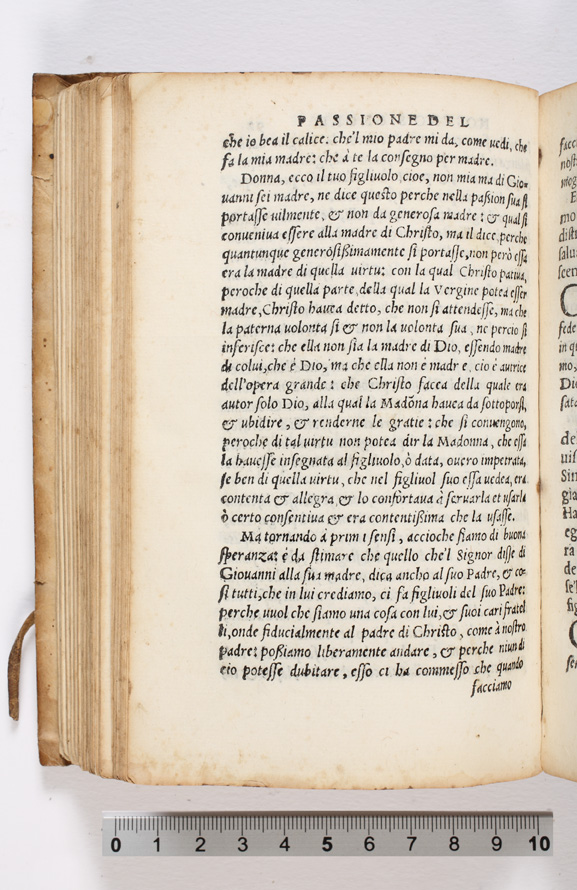 PASSIONE DEL
che io bea il calice. che'l mio padre mi da, come uedi, che
fa la mia madre: che à te la consegno per madre.
Donna, ecco il tuo figliuolo, cioe, non mia ma di Gio-
uanni sei madre, ne dice questo perche nella passion sua si
portasse uilmente, & non da generosa madre: & qual si
conueniua essere alla madre di Christo, ma il dice, perche
quantunque generosissimamente si portasse, non però essa
era la madre di quella uirtu: con la qual Christo patiua,
peroche di quella parte, della qual la Vergine potea esser
madre, Christo hauea detto, che non si attendesse, ma che
la paterna uolonta si & non la uolonta sua, ne percio si
inferisce: che ella non sia la madre di Dio, essendo madre
di colui, che è Dio, ma che ella non è madre, cio è autrice
dell'opera grande: che Christo facea della quale era
autor solo Dio, alla qual la Madōna hauea da sottoporsi,
& ubidire, & renderne le gratie: che si conuengono,
peroche di tal uirtu non potea dir la Madonna, che essa
la hauesse insegnata al figliuolo, ò data, ouero impetrata,
se ben di quella uirtu, che nel figliuol suo essa uedea, era
contenta & allegra, & lo confortaua à seruarla et usarla
ò certo consentiua & era contentissima che la usasse.
Ma tornando à primi sensi, accioche siamo di buona
speranza: è da stimare che quello che'l Signor disse di
Giouanni alla sua madre, dica ancho al suo Padre, & co-
si tutti, che in lui crediamo, ci fa figliuoli del suo Padre:
perche uuol che siamo una cosa con lui, & suoi cari fratel
li, onde fiducialmente al padre di Christo, come à nostro
padre: possiamo liberamente andare, & perche niun di
cio potesse dubitare, esso ci ha commesso che quando
facciamo
0 1 2 3 4 5 6 7 8 9 10